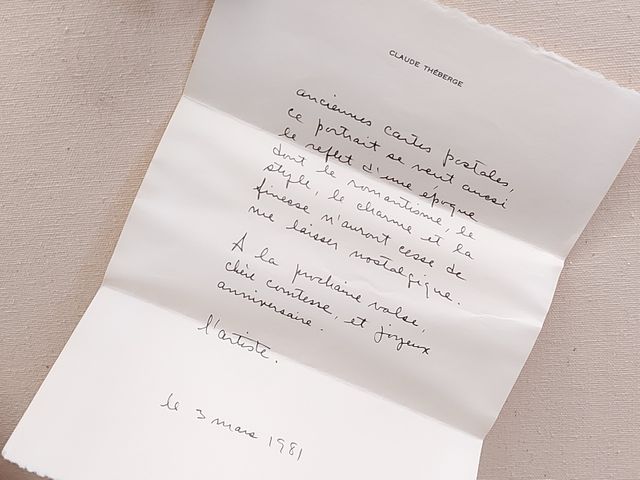 CLAUDE THÉBERGE
anciennes cartes postales,
ce portrait se veut aussi
le reflet d'une époque
dont le romantisme, le
style, le charme et la
finesse n'auront cesse de
me laisser nostalgique.
A la prochaine valse,
chère comtesse, et joyeux
anniversaire.
l'artiste.
le 3 mars 1981